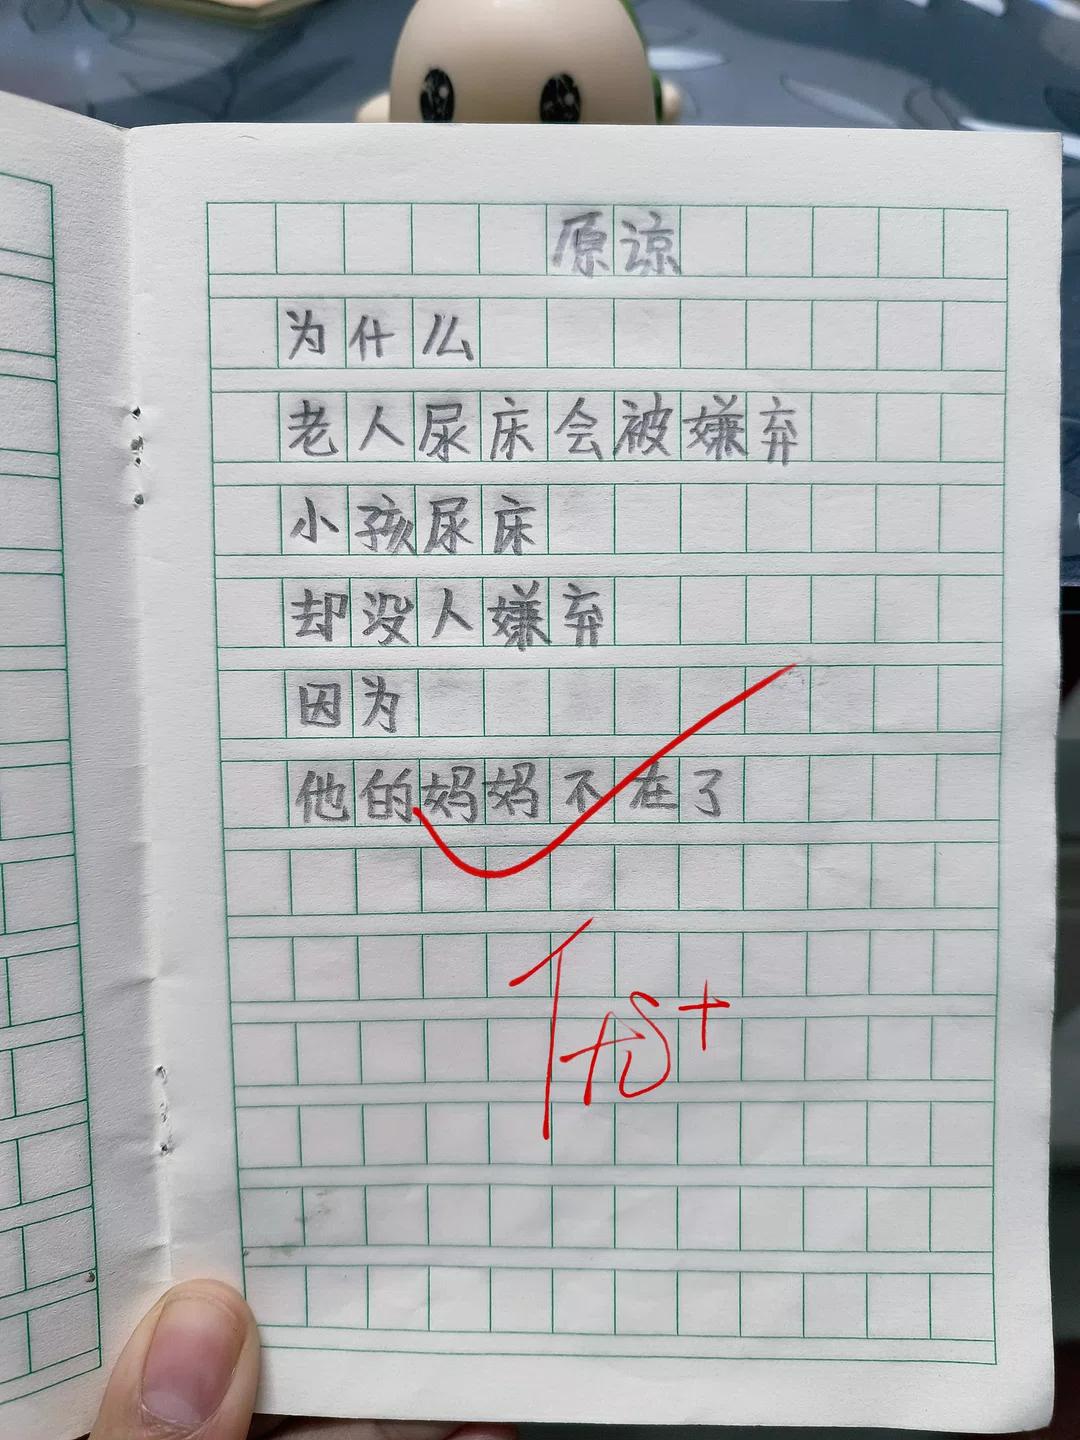 原谅
为什么
老人尿床会被嫌弃
小孩尿床
却没人嫌弃
因为
他的妈妈不在了
优+